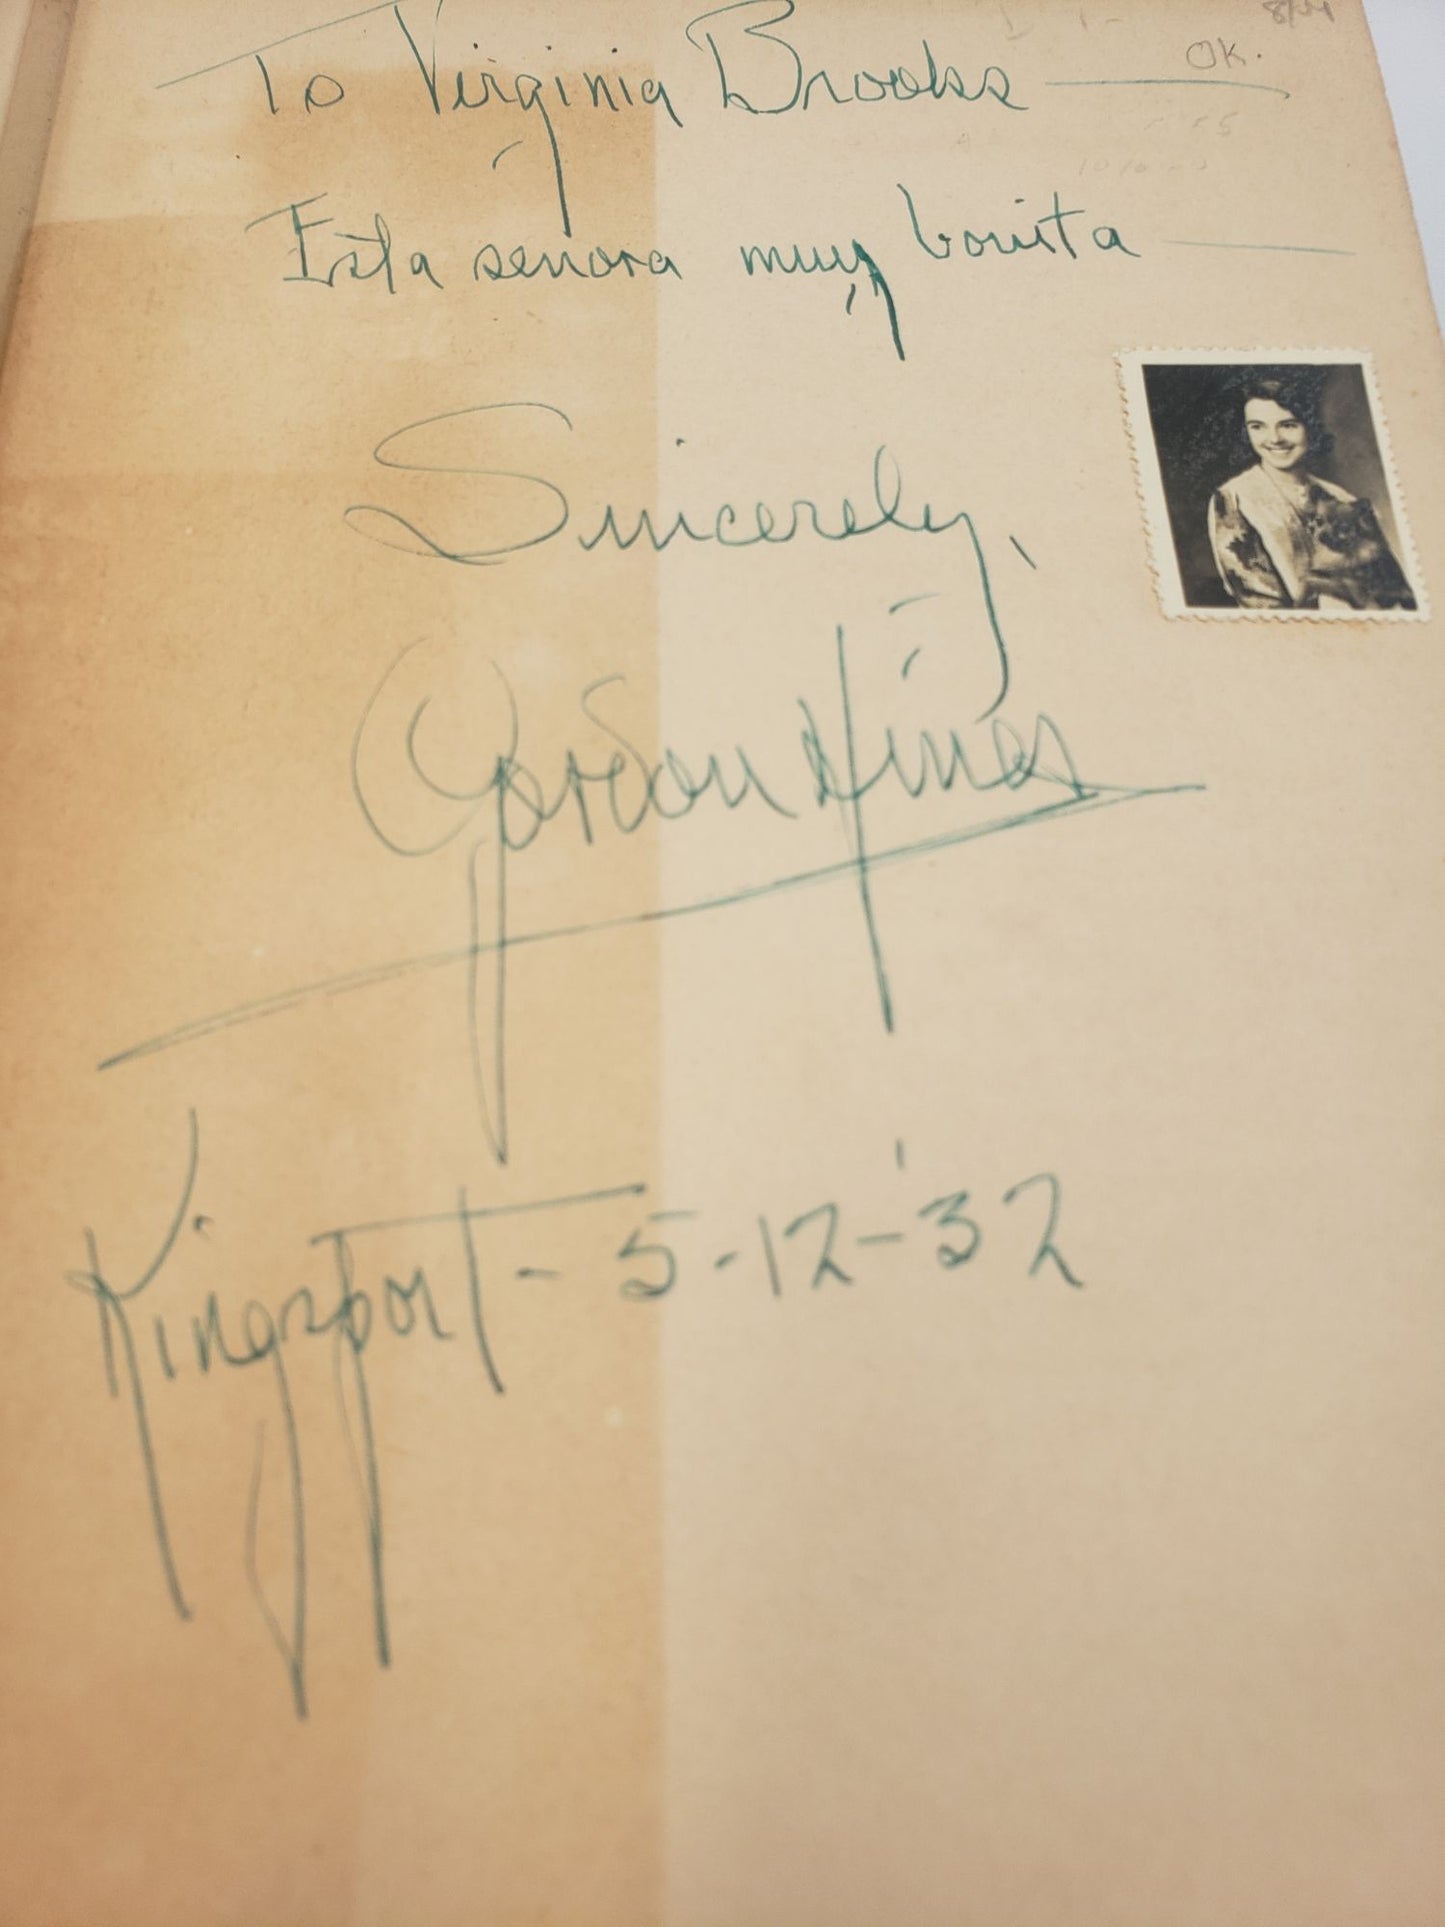 To Virginia Brooks
OK.
Esta senora muy bonita
Sincerely,
Gordon Hines
Kingsport - 5-12-'32